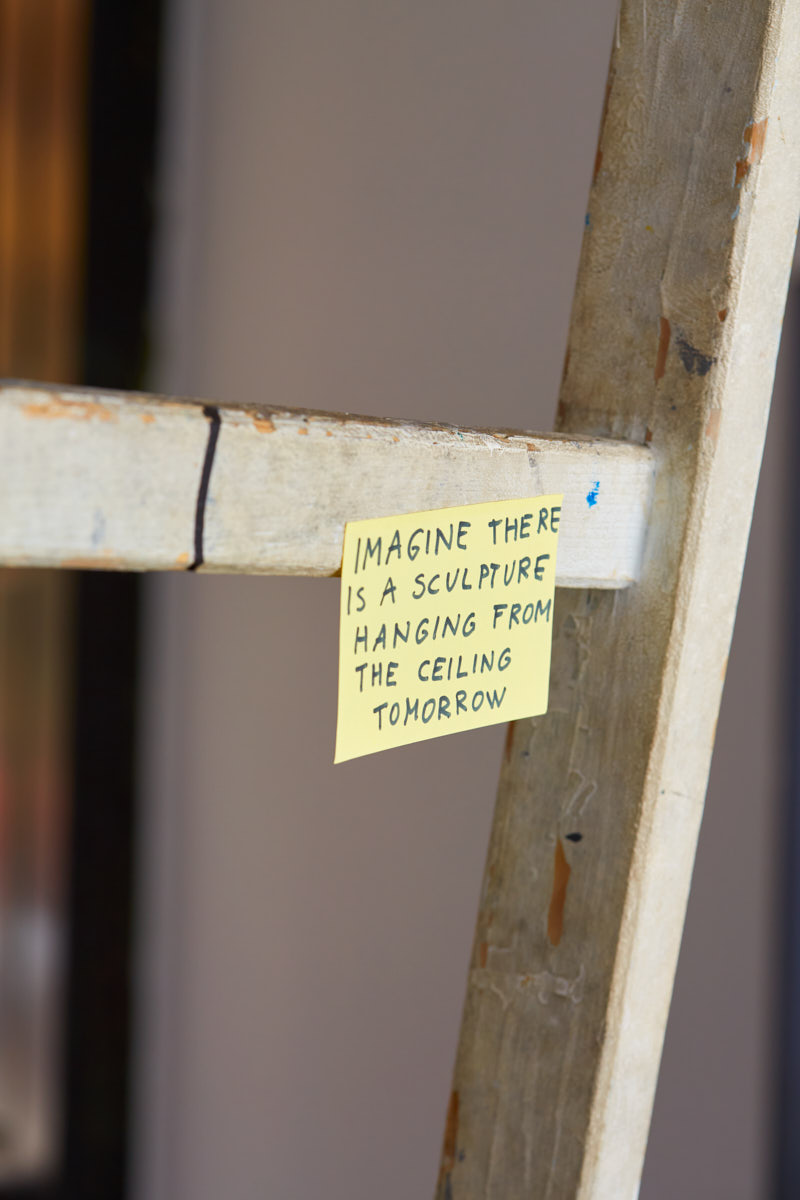 IMAGINE THERE
IS A SCULPTURE
HANGING FROM
THE CEILING
TOMORROW